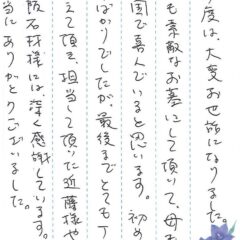 度は、大変お世話になりました。
も素敵なお墓にして頂いて、母も
国で喜んでいると思います。初め
ばかりでしたが、最後までとても丁
えて頂き、担当して頂いた近藤様や
阪石材様には、深く感謝しています。
当にありがとうございました。